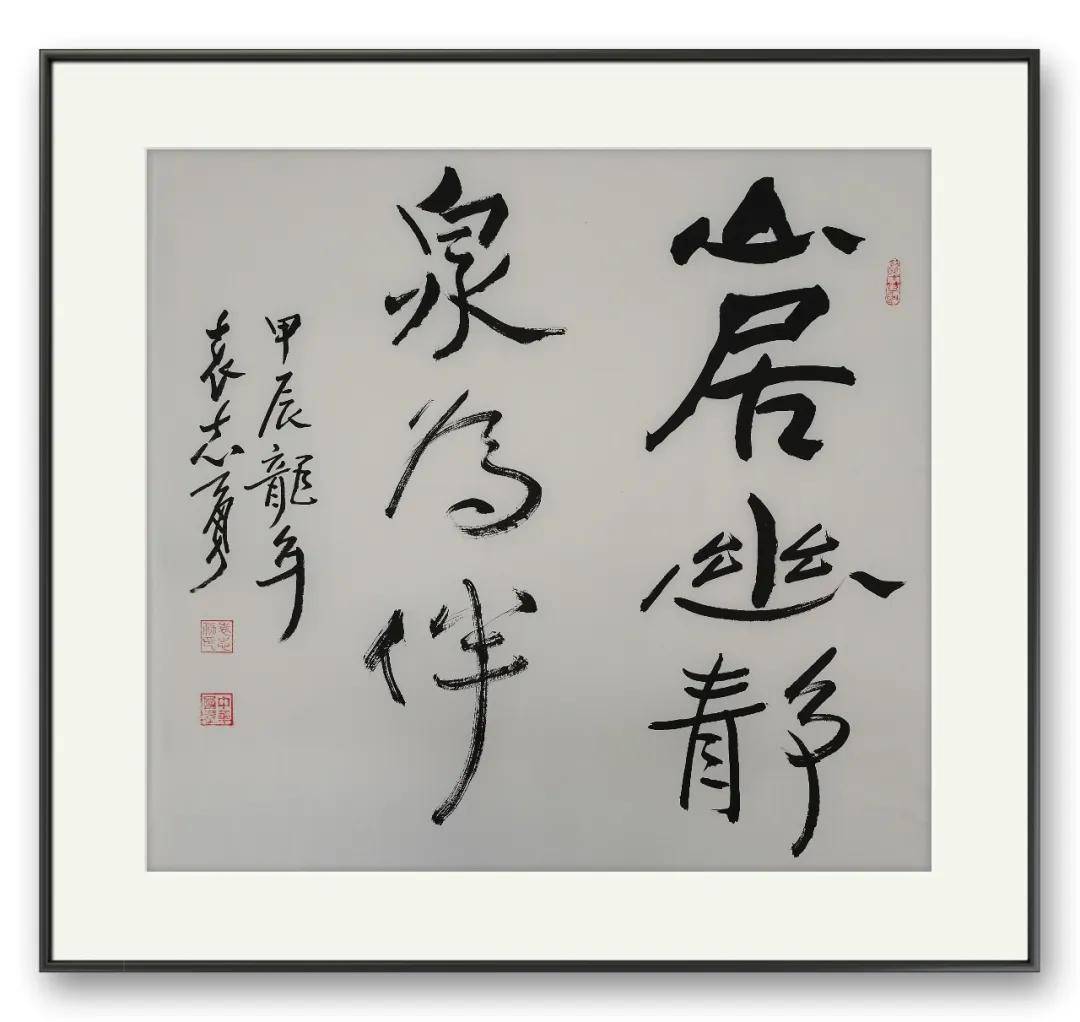 山居幽静
泉为伴
甲辰龍年
袁志勇